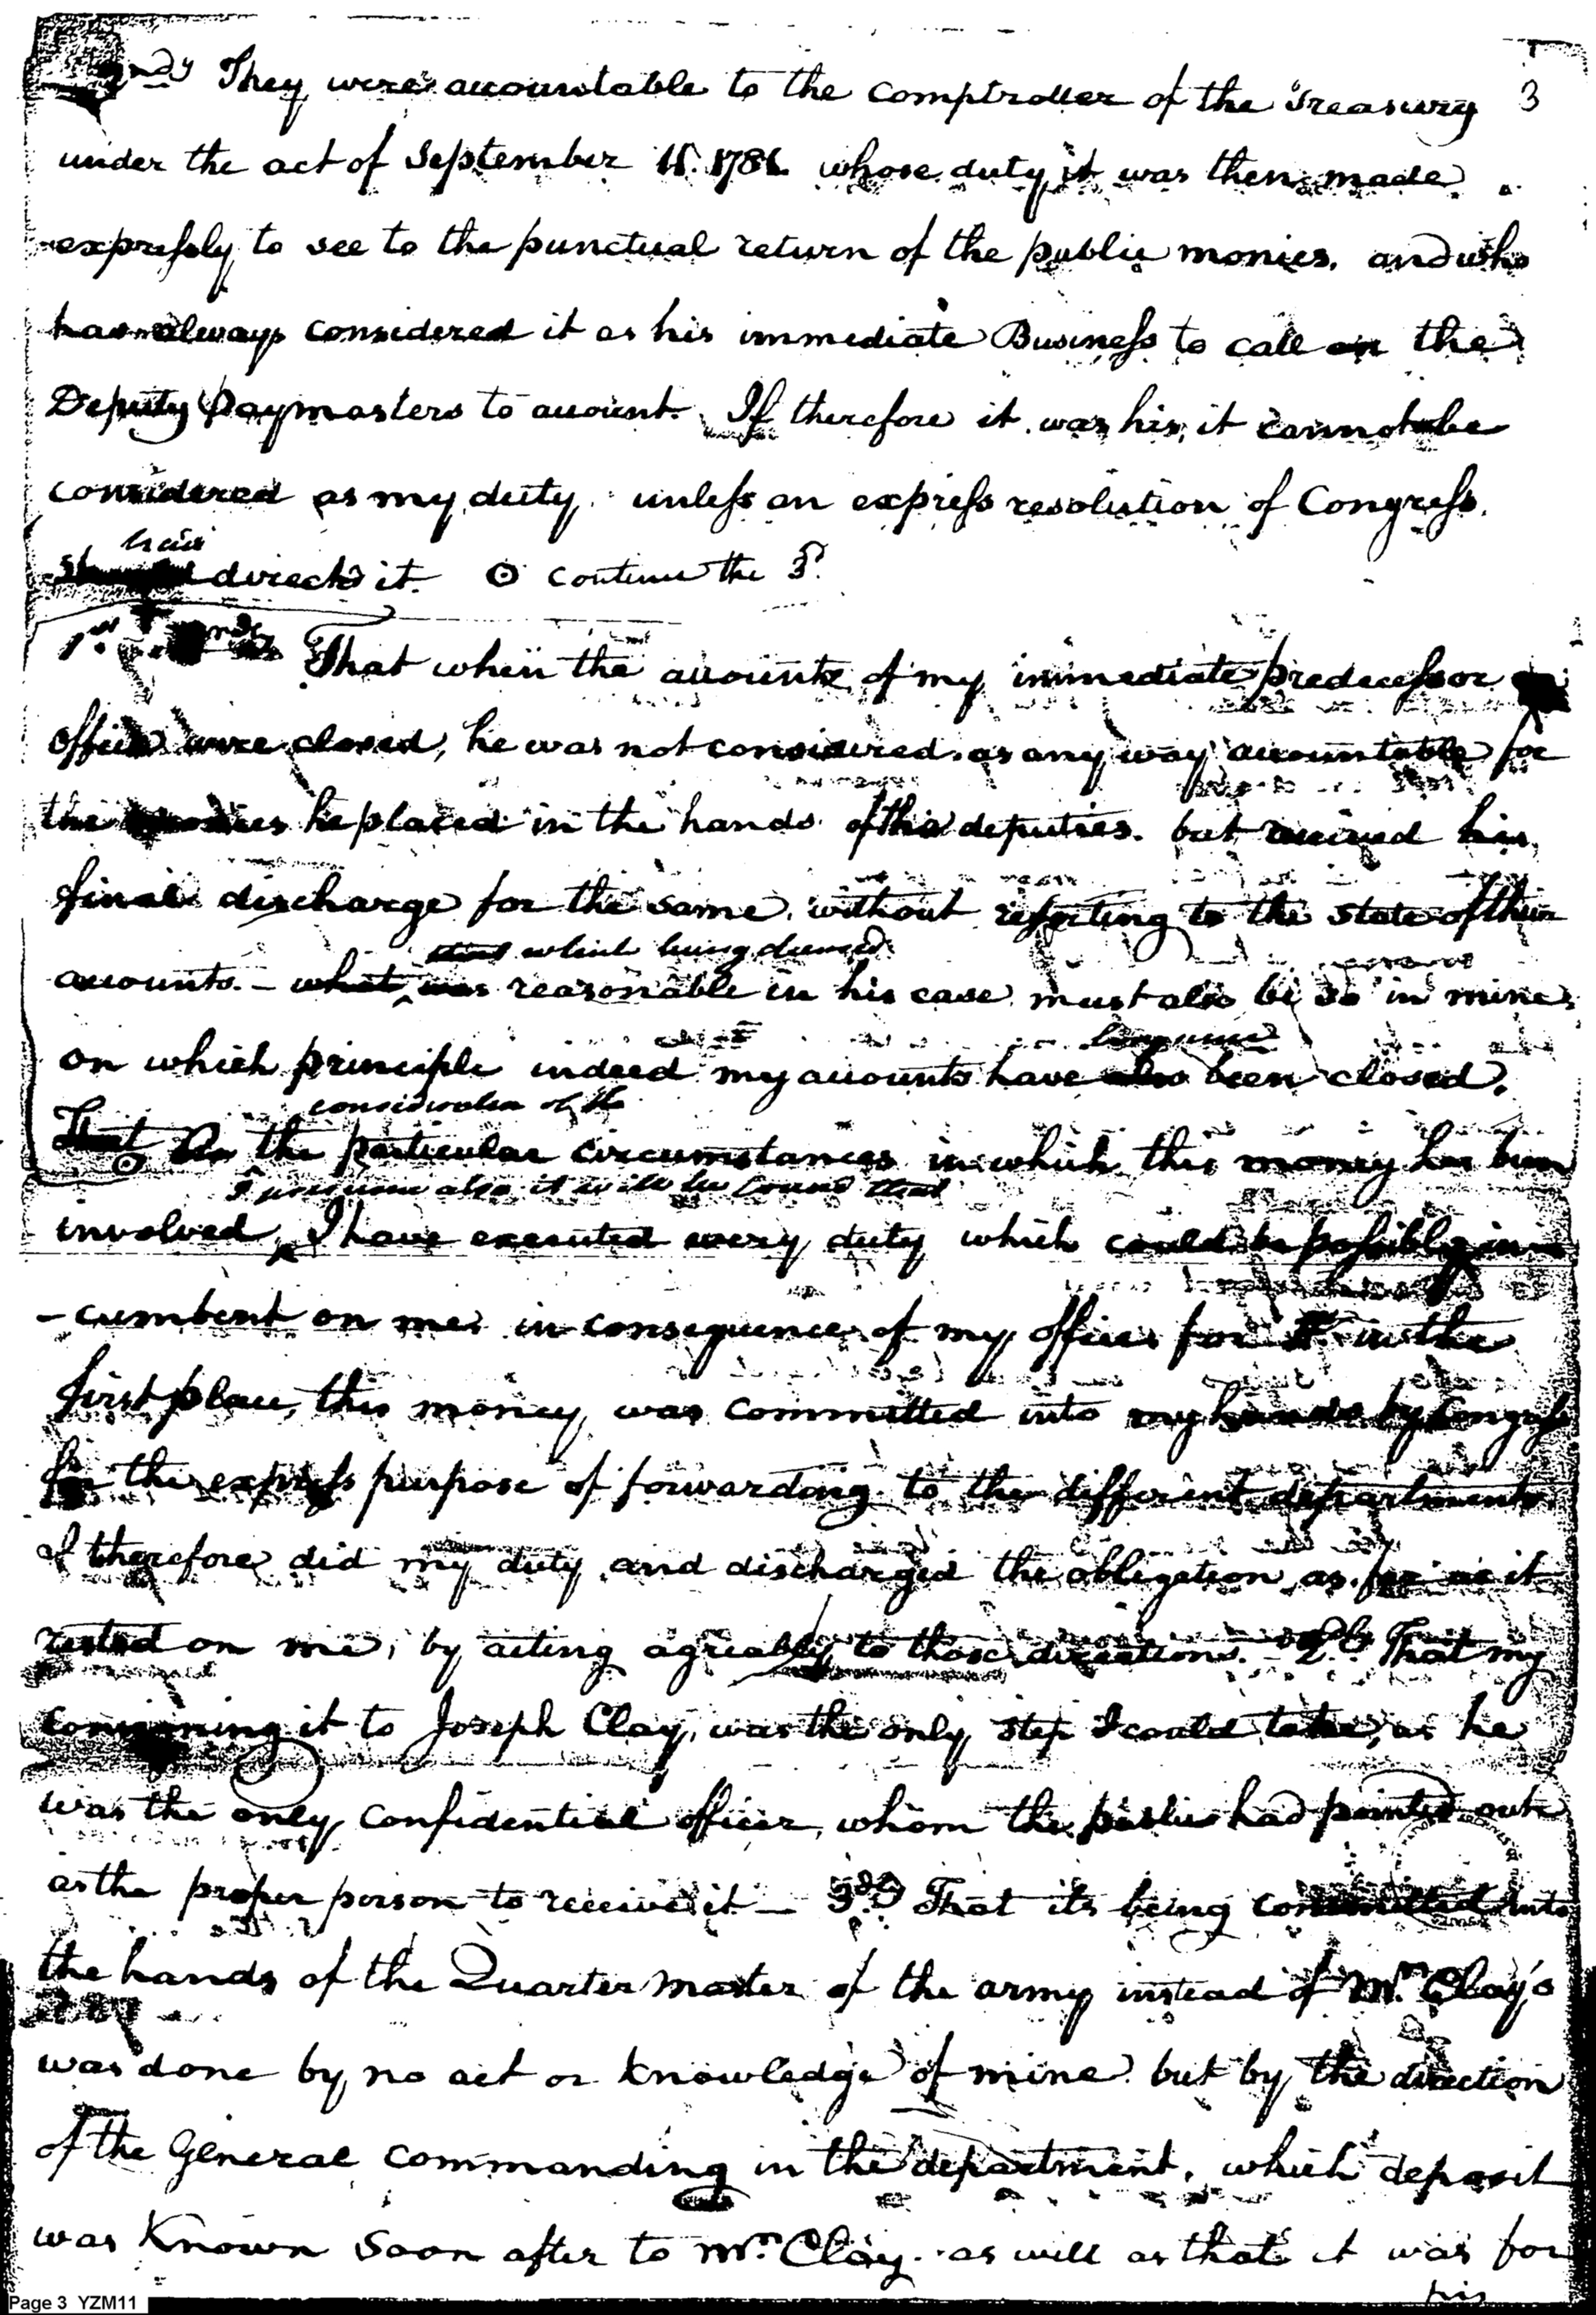 2ndly They were accountable to the comptroller of the Treasury 3
under the act of September 11. 1781. whose duty it was then made
expressly to see to the punctual return of the public monies. and who
has always considered it as his immediate Business to call on the
Deputy Paymasters to account. If therefore it was his, it cannot be
considered as my duty. unless an express resolution of Congress.
had
directed it. ⊙ continue the 3d.
1st That when the accounts of my immediate predecessor
office were closed, he was not considered as any way accountable for
the monies he placed in the hands of his deputies. but received his
final discharge for the same. without referting to the state of their
accounts. – what was reasonable in his case must also be so in mine,
which being deemed
on which principle indeed my accounts have also been closed.
long since
consideration of the
That On the particular circumstances in which this money has been
I presume also it will be found that
involved, I have executed every duty which could be possibly in
-cumbent on me in consequence of my office for in the
first place, this money was committed into my hands by Congress
for the express purpose of forwarding to the different departments.
I therefore did my duty and discharged the obligation as far as it
rested on me, by acting agreably to those directions. – 2dly That my
consigning it to Joseph Clay, was the only step I could take, as he
was the only confidential officer, whom the public had pointed out
as the proper person to receive it – 3dly That its being committed into
the hands of the Quarter Master of the army instead of Mr. Clay's
was done by no act or knowledge of mine but by the direction
of the General commanding in the department, which deposit
was known soon after to Mr. Clay. as well as that it was for
his
Page 3 YZM11